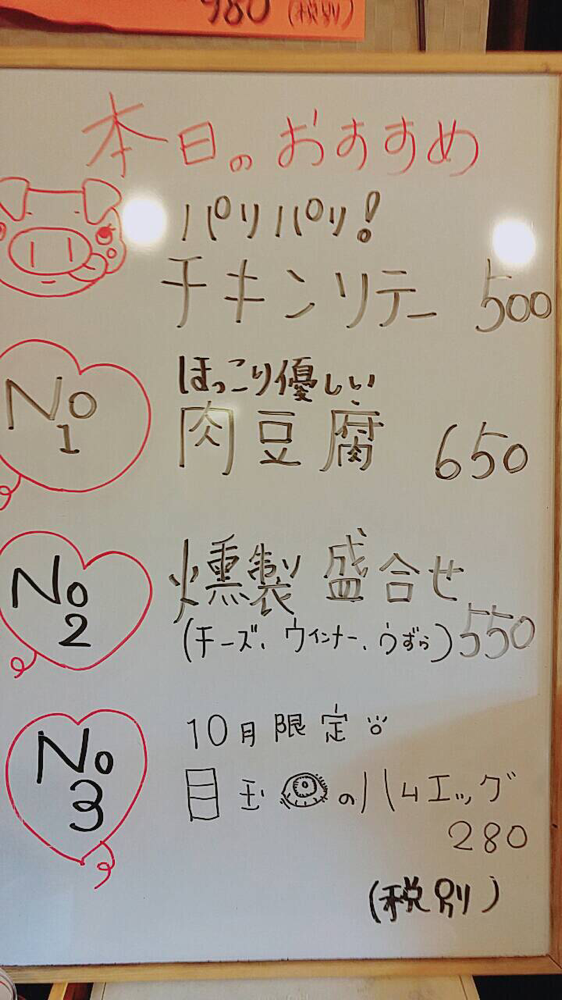 980 (税別)
本日のおすすめ
パリパリ!
チキンソテー 500
No 1
ほっこり優しい
肉豆腐 650
No 2
燻製 盛合せ
(チーズ、ウインナー、うずら) 550
No 3
10月限定
目玉のハムエッグ
280
(税別)